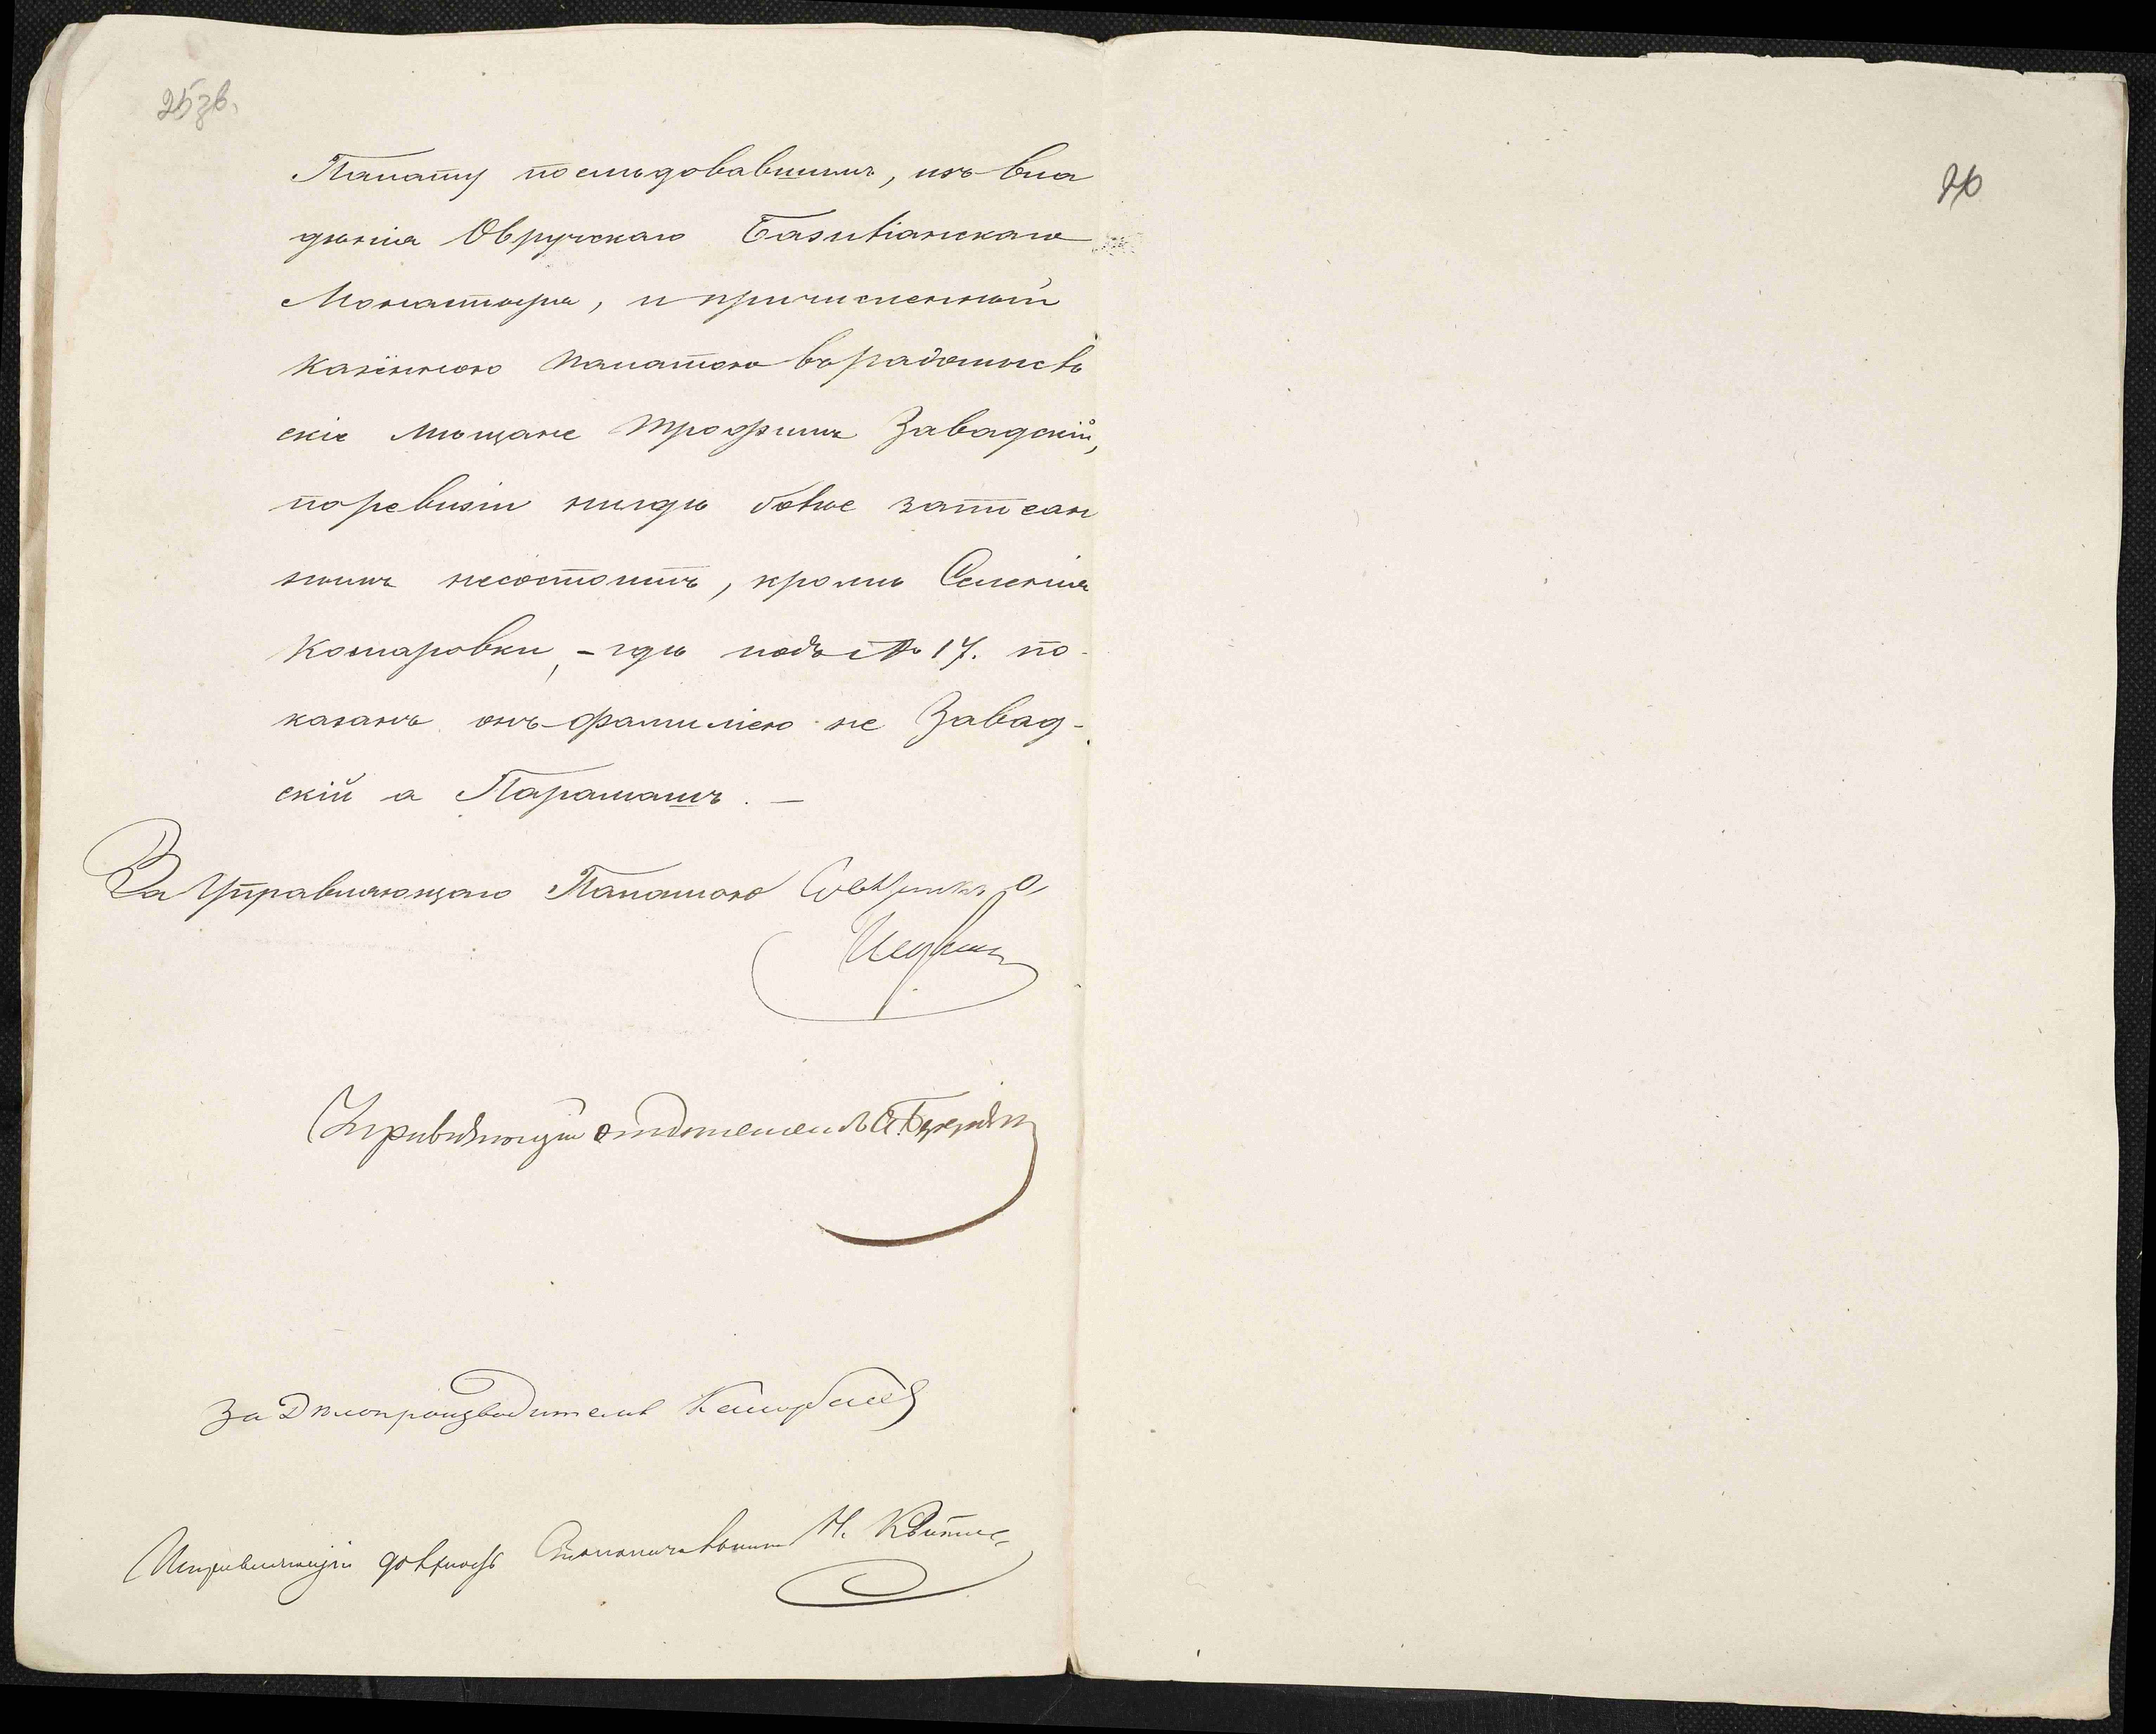 25 зв.
26
Палату последовавшимъ, изъ вла
дѣнія Овручскаго Базиліанскаго
Монастыря, и причисленный
Казенною Палатою въ радомысль
скіе Мѣщане Трофимъ Завадскій,
по ревизіи нигдѣ более записан
нымъ несостоитъ, кромѣ Селенія
Комаровки, – гдѣ подъ № 17. по-
казанъ онъ фамиліею не Завад-
скій а Парамашъ. –
За Управляющаго Палатою Совѣтникъ
Управляющій отделениемъ
За Дѣлопроизводителя
Исправляющій должность Столоначальника Н.